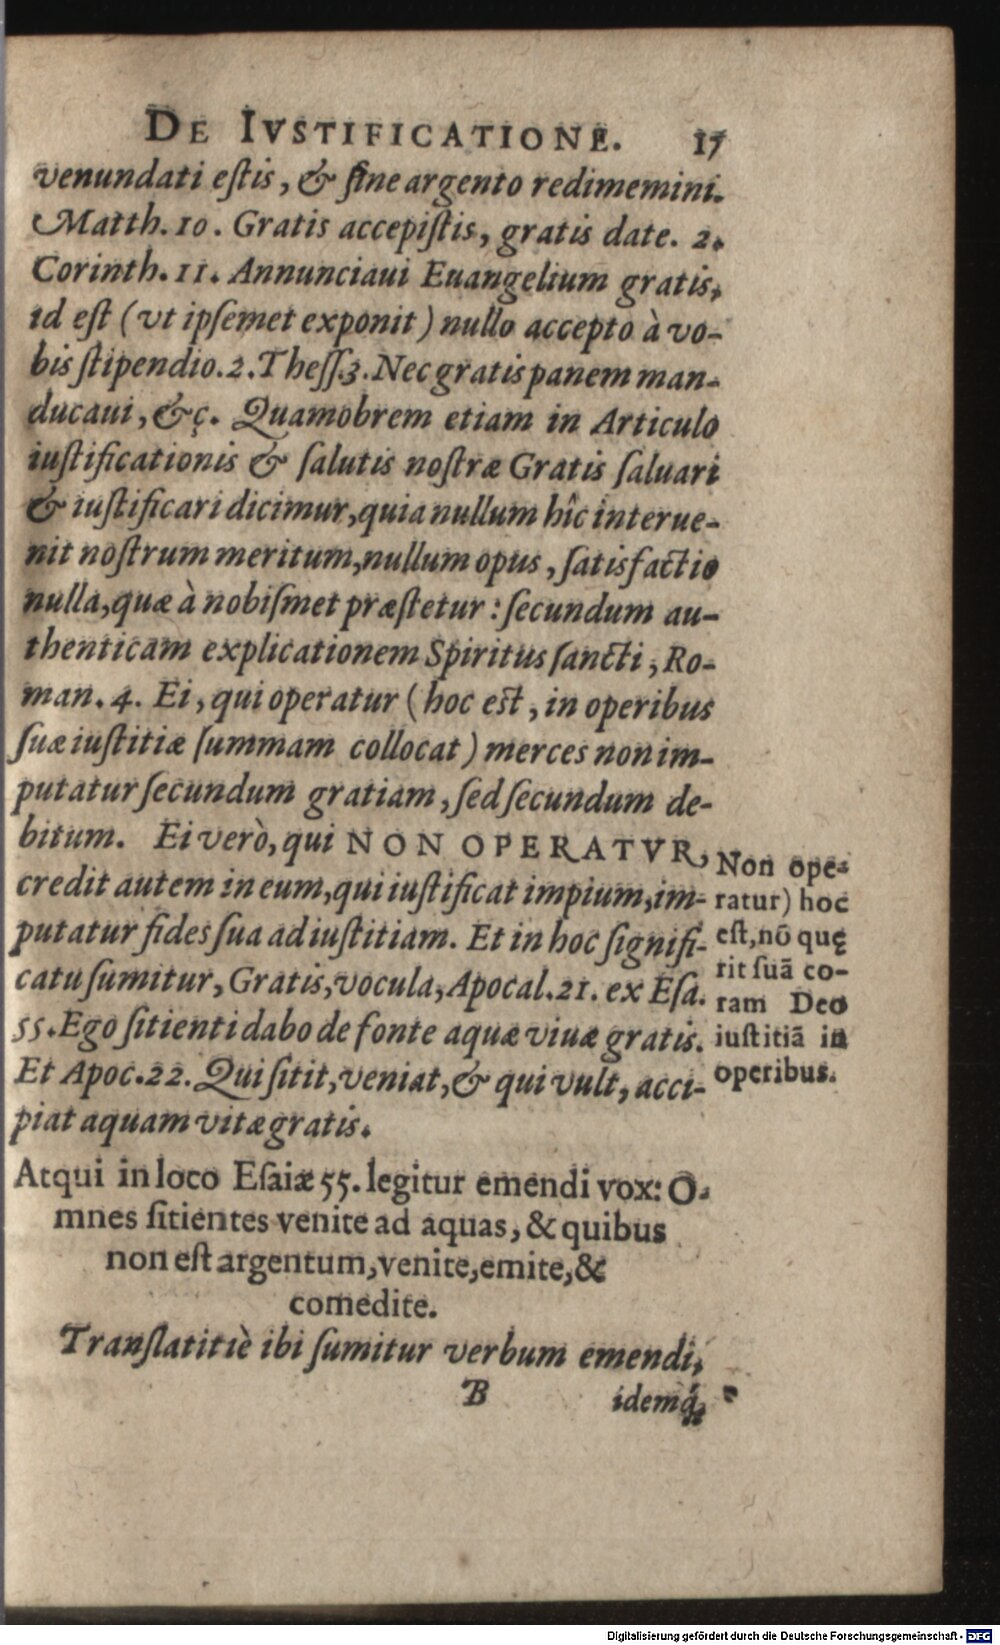 DE IVSTIFICATIONE. 17
venundati eſtis, & ſine argento redimemini.
Matth. 10. Gratis accepiſtis, gratis date. 2.
Corinth. 11. Annunciaui Euangelium gratis,
id eſt (vt ipſemet exponit) nullo accepto à vo-
bis ſtipendio. 2. Theſſ. 3. Nec gratis panem man-
ducaui, &ç. Quamobrem etiam in Articulo
iuſtificationis & ſalutis noſtræ Gratis ſaluari
& iuſtificari dicimur, quia nullum hîc interue-
nit noſtrum meritum, nullum opus, ſatisfactio
nulla, quæ à nobiſmet præſtetur: ſecundum au-
thenticam explicationem Spiritus ſancti, Ro-
man. 4. Ei, qui operatur (hoc eſt, in operibus
ſuæ iuſtitiæ ſummam collocat) merces non im-
putatur ſecundum gratiam, ſed ſecundum de-
bitum. Ei verò, qui NON OPERATVR,
credit autem in eum, qui iuſtificat impium, im-
putatur fides ſua ad iuſtitiam. Et in hoc ſignifi-
catu ſumitur, Gratis, vocula, Apocal. 21. ex Eſa.
55. Ego ſitienti dabo de fonte aquæ viuæ gratis.
Et Apoc. 22. Qui ſitit, veniat, & qui vult, acci-
piat aquam vitæ gratis.
Non ope-
ratur) hoc
eſt, nō quę
rit ſuā co-
ram Deo
iuſtitiā in
operibus.
Atqui in loco Eſaiæ 55. legitur emendi vox: O-
mnes ſitientes venite ad aquas, & quibus
non eſt argentum, venite, emite, &
comedite.
Tranſlatitiè ibi ſumitur verbum emendi,
B idemq́;
Digitalisierung gefördert durch die Deutsche Forschungsgemeinschaft - DFG